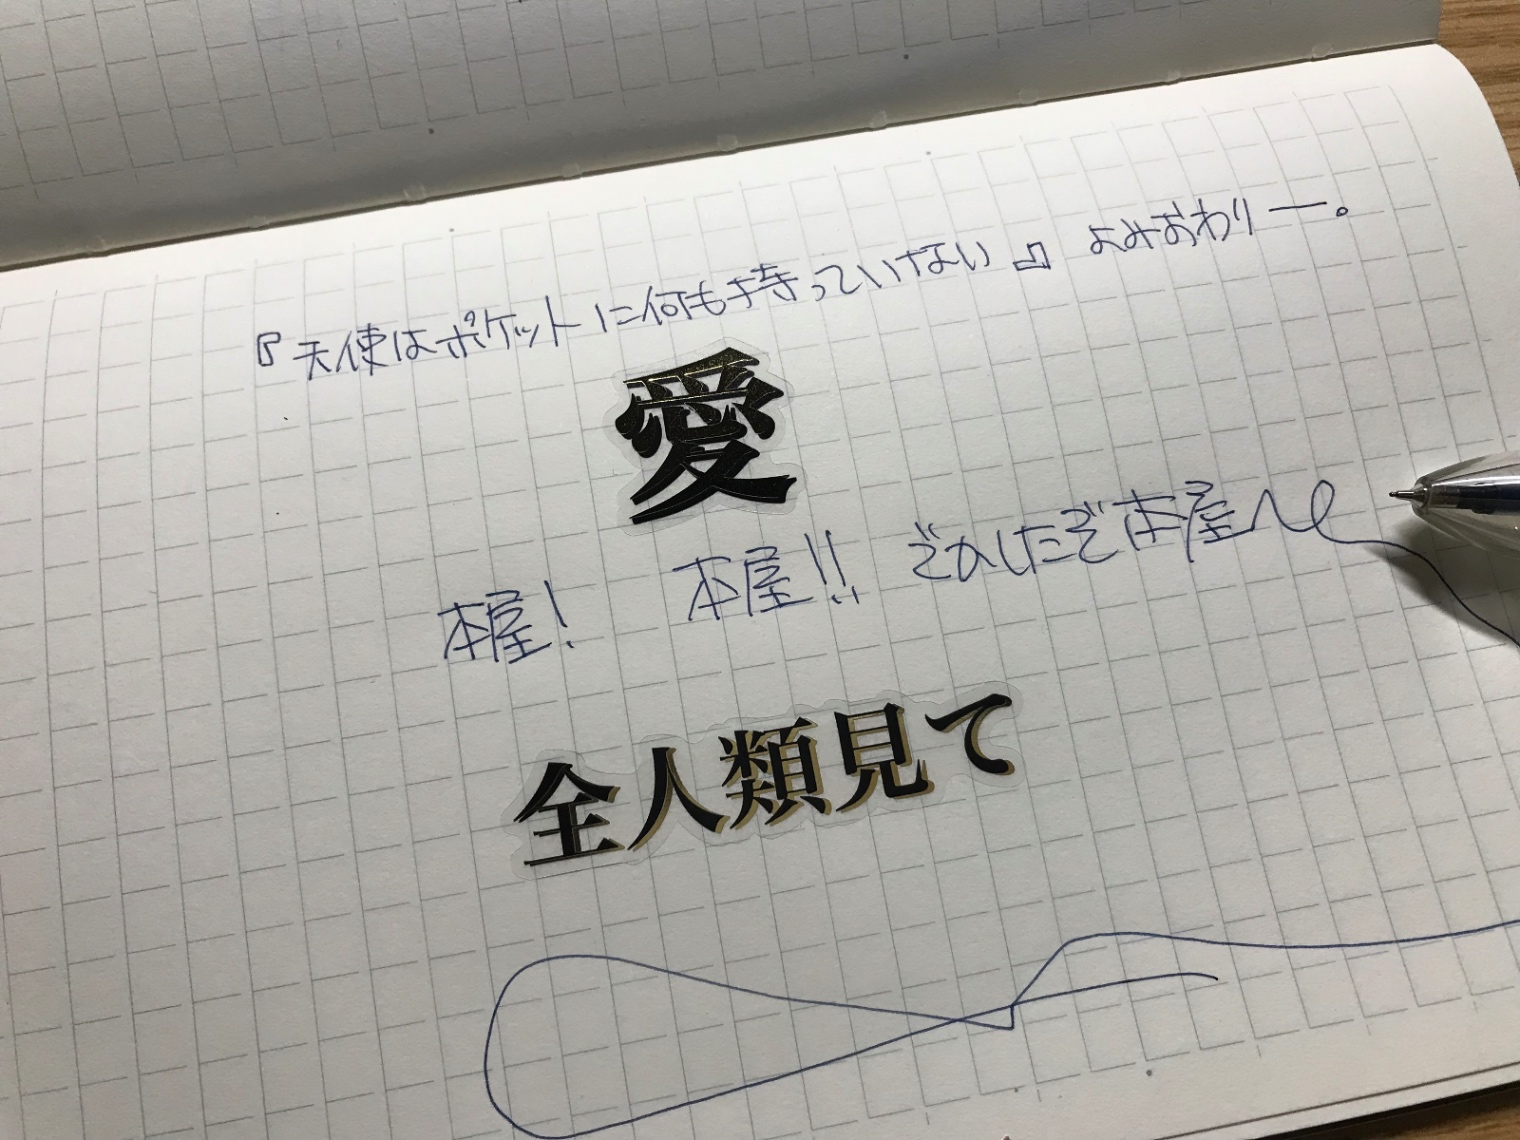 『天使はポケットに何も持っていない』 よみおわりー。
愛
本屋! 本屋!! どかしたぞ本屋〜
全人類見て